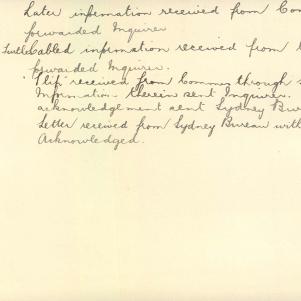 Later information received from Com
forwarded Inquirer
Cabled information received from
forwarded Inquirer.
"Slip" received from Commr through s
Information therein sent Inquirer.
acknowledgement sent Sydney Bur
Letter received from Sydney Bureau with
Acknowledged.